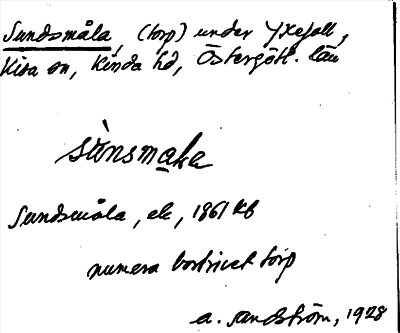 Sundsmåla, (torp) under Yxefall,
Kisa sn, Kinda hd, Östergötl. län
sùnsmala
Sundsmåla, 1861 kb
numera bortrivet torp
A. Sandström, 1928